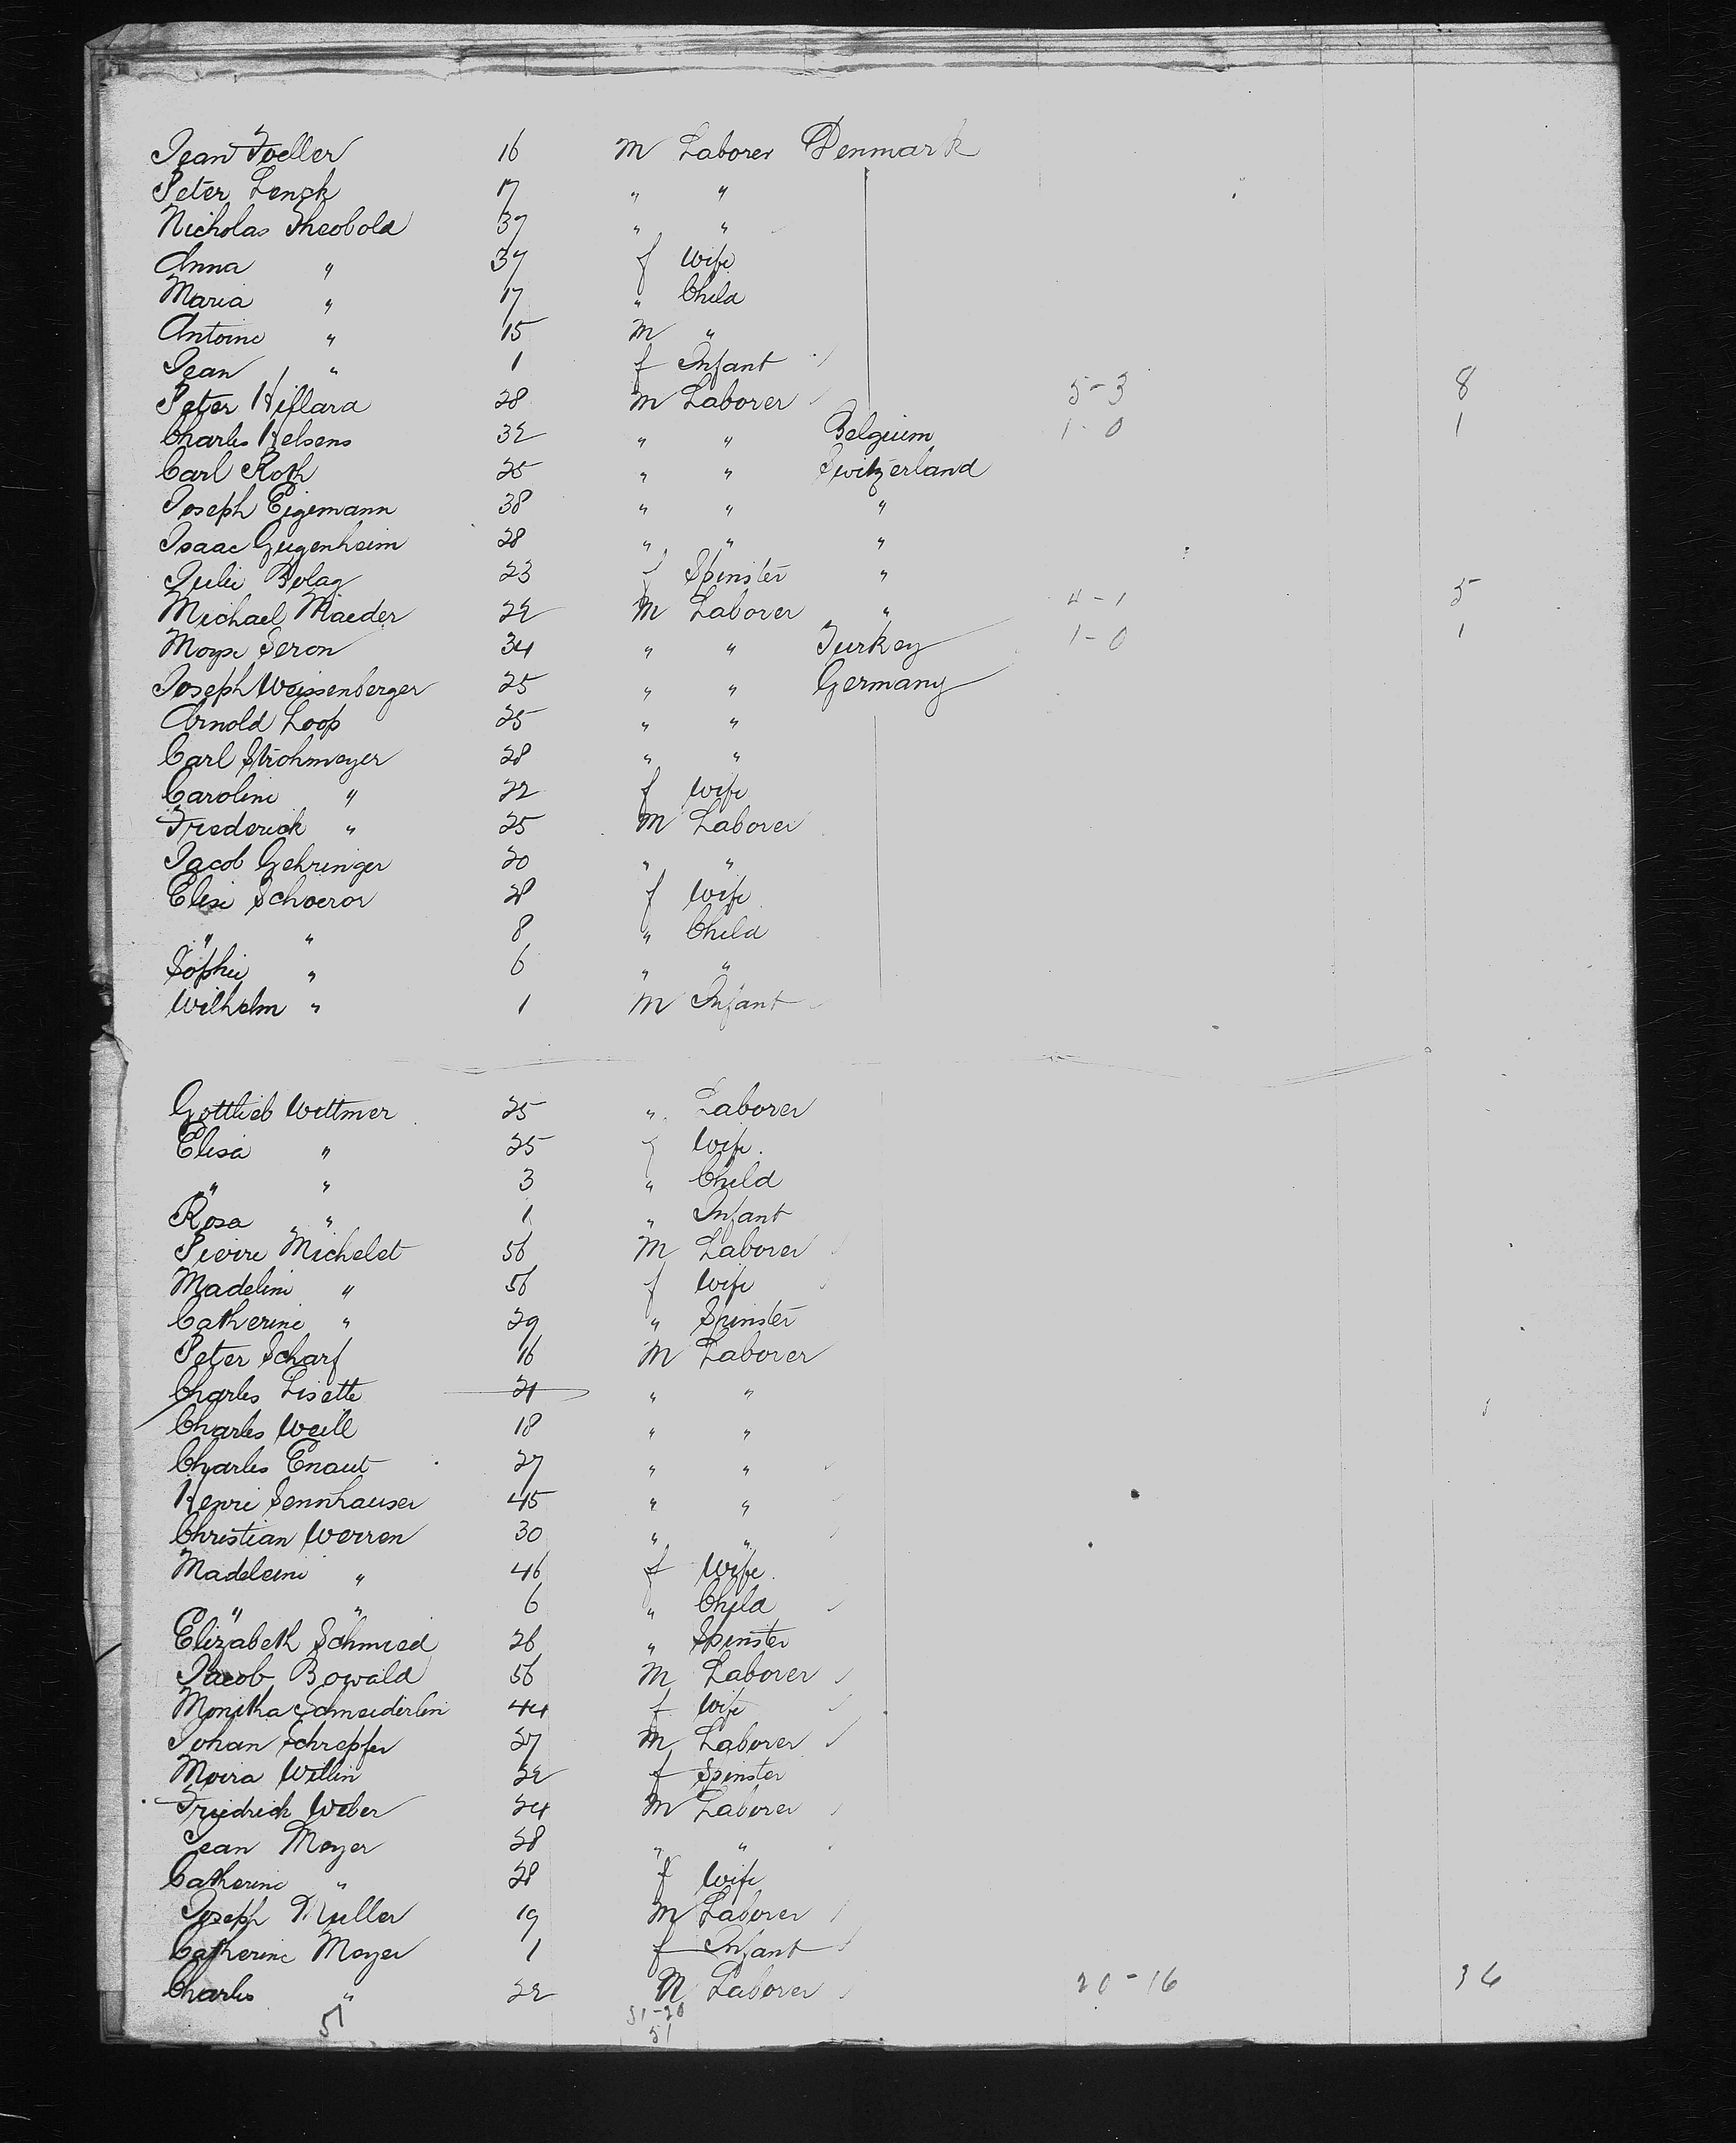 Jean Foeller 16 M Laborer Denmark
Peter Lenck 17 " "
Nicholas Theobold 37 " "
Anna " 37 f Wife
Maria " 17 " Child
Antoine " 15 M "
Jean " 1 f Infant
Peter Hiflara 28 M Laborer 5-3 8
Charles Helsens 32 " " Belgium 1-0 1
Carl Roth 25 " " Switzerland
Joseph Eigemann 38 " " "
Isaac Gugenheim 28 " " "
Julie Bolag 23 f Spinster "
Michael Maeder 22 M Laborer " 4-1 5
Moyse Seron 34 " " Turkey 1-0 1
Joseph Weissenberger 25 " " Germany
Arnold Loop 25 " "
Carl Strohmeyer 28 " "
Caroline " 22 f Wife
Frederick " 25 M Laborer
Jacob Gehringer 20 " "
Elise Schoeror 28 f Wife
" " 8 " Child
Sophie " 6 " "
Wilhelm " 1 M Infant
Gottlieb Wittmer 25 " Laborer
Elisa " 25 f Wife
" " 3 " Child
Rosa " 1 " Infant
Pierre Michelet 56 M Laborer
Madeline " 56 f Wife
Catherine " 29 " Spinster
Peter Scharf 16 M Laborer
Charles Lisette 21 " "
Charles Weill 18 " "
Charles Enaut 27 " "
Henri Sennhauser 45 " "
Christian Werren 30 " "
Madeleine " 46 f Wife
" " 6 " Child
Elizabeth Schmied 26 " Spinster
Jacob Bowald 56 M Laborer
Monika Schneiderlin 44 f Wife
Johan Schrepfer 27 M Laborer
Moira Willin 22 f Spinster
Friedrich Weber 24 M Laborer
Jean Meyer 28 " "
Catherine " 28 f Wife
Joseph Muller 19 M Laborer
Catherine Meyer 1 f Infant
Charles " 22 M Laborer 20-16 36
51 31-20
51